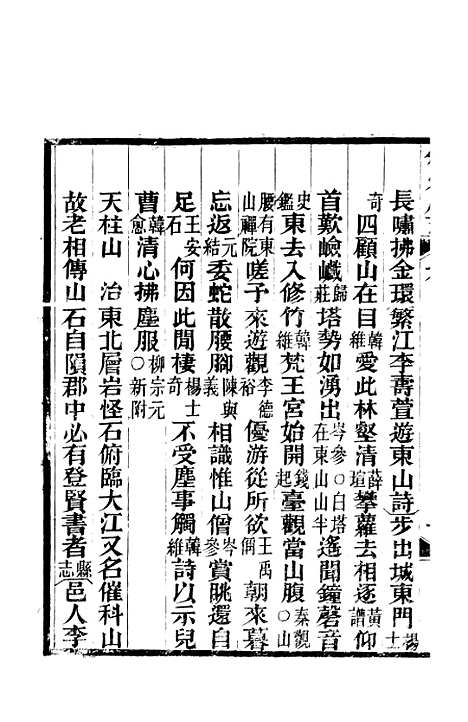 長嘯拂金環繁江李壽萱遊東山詩步出城東門楊士
奇四顧山在目韓維愛此林壑清薛瑄攀蘿去相逐黃譜仰
首歎嶮巇歸莊塔勢如湧出岑參○白塔在東山山半遙聞鐘磬音
史鑑東去入修竹韓維梵王宮始開錢起臺觀當山腹秦觀○山
腰有東山禪院嗟子來遊觀李德裕優游從所欲王禹偁朝來暮
忘返元結委蛇散腰腳陳與義相識惟山僧岑參賞眺還自
足王安石何因此閒棲楊士奇不受塵事觸韓維詩以示兒
曹韓愈清心拂塵服柳宗元○新附
天柱山　治東北層岩怪石俯臨大江又名催科山
故老相傳山石自隕郡中必有登賢書者縣志邑人李